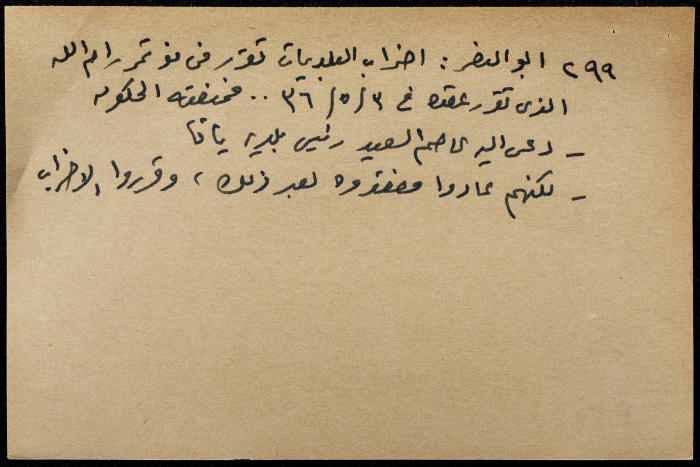 ٢٩٩ ابو النضر : اضراب البلديات تقرر في مؤتمر رام الله
الذي تقرر عقده في ٣/٥/٣٦ .. فمنعته الحكومه
- دعى اليه عاصم السعيد رئيس بلدية يافا
- لكنهم عادوا فعقدوه بعد ذلك ، وقرروا الاضراب